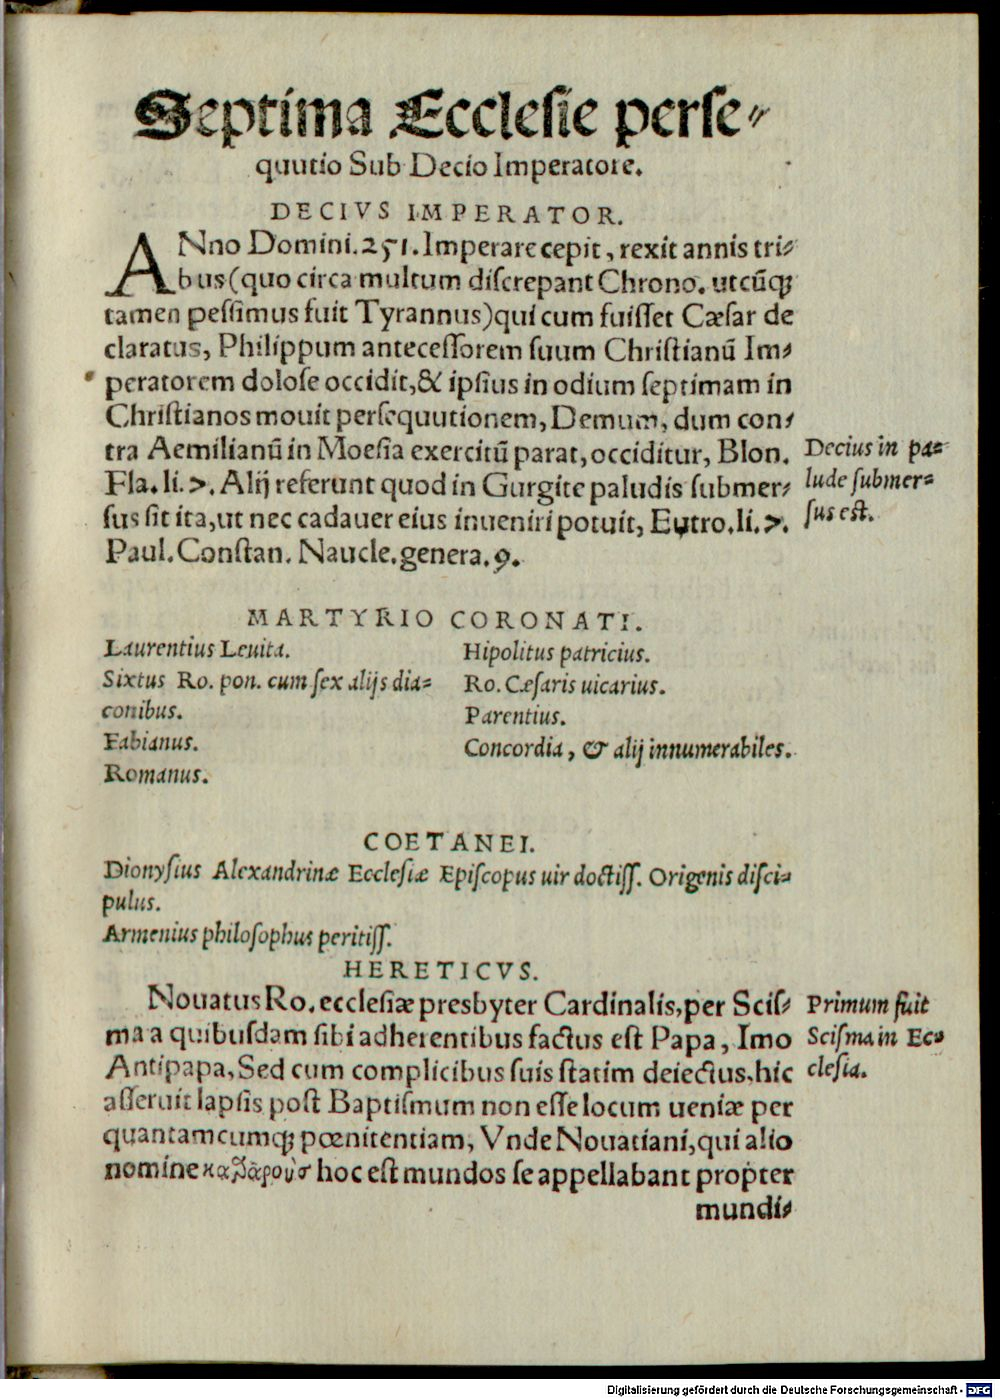 Septima Ecclesie perse⸗
quutio Sub Decio Imperatore.
DECIVS IMPERATOR.
ANno Domini. 251. Imperare cepit, rexit annis tri⸗
bus (quo circa multum discrepant Chrono. utcũq;
tamen pessimus fuit Tyrannus) qui cum fuisset Cæsar de
claratus, Philippum antecessorem suum Christianũ Im⸗
peratorem dolose occidit, & ipsius in odium septimam in
Christianos mouit persequutionem, Demum, dum con⸗
tra Aemilianũ in Moesia exercitũ parat, occiditur, Blon.
Fla. li. 7. Alij referunt quod in Gurgite paludis submer⸗
sus sit ita, ut nec cadauer eius inueniri potuit, Eutro. li. 7.
Paul. Constan. Naucle. genera. 9.
Decius in pa⸗
lude submer⸗
sus est.
MARTYRIO CORONATI.
Laurentius Leuita.
Sixtus Ro. pon. cum sex alijs dia⸗
conibus.
Fabianus.
Romanus.
Hipolitus patricius.
Ro. Cæsaris uicarius.
Parentius.
Concordia, & alij innumerabiles.
COETANEI.
Dionysius Alexandrinæ Ecclesiæ Episcopus uir doctiss. Origenis disci⸗
pulus.
Armenius philosophus peritiss.
HERETICVS.
Nouatus Ro. ecclesiæ presbyter Cardinalis, per Scis⸗
ma a quibusdam sibi adherentibus factus est Papa, Imo
Antipapa, Sed cum complicibus suis statim deiectus, hic
asseruit lapsis post Baptismum non esse locum ueniæ per
quantamcumq; pœnitentiam, Vnde Nouatiani, qui alio
nomine καθαροὺσ hoc est mundos se appellabant propter
mundi⸗
Primum fuit
Scisma in Ec⸗
clesia.
Digitalisierung gefördert durch die Deutsche Forschungsgemeinschaft - DFG